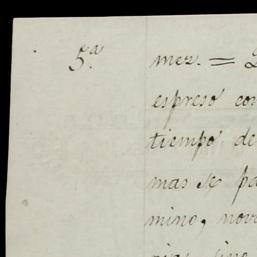 5.ª mez. =
espreso con
tiempo de
mas se pa
mino, nov